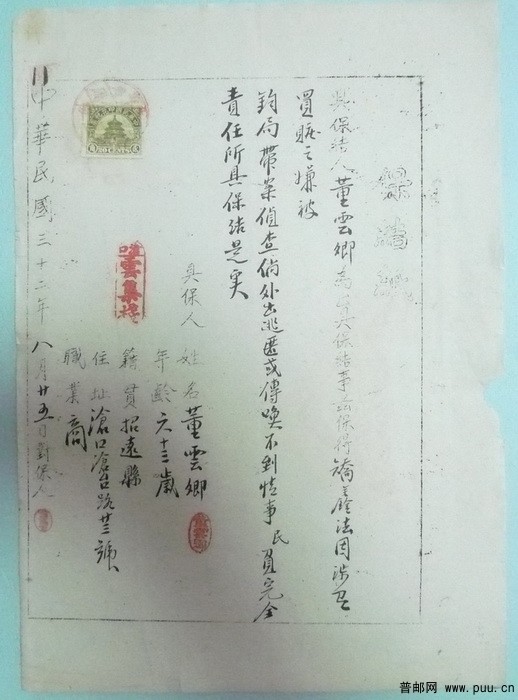 保結書
具保結人董雲卿為具保結事茲保得矯會法因涉有
買賍之嫌被
鈞局帶案偵查倘外出逃匿或傳喚不到情事民負完全
責任所具保結是实
具保人
姓名董雲卿
年齡六十三歲
籍貫招遠縣
住址滄口滄台路廿三號
職業商
中華民國三十二年八月廿五日對保人
普邮网 www.puu.cn